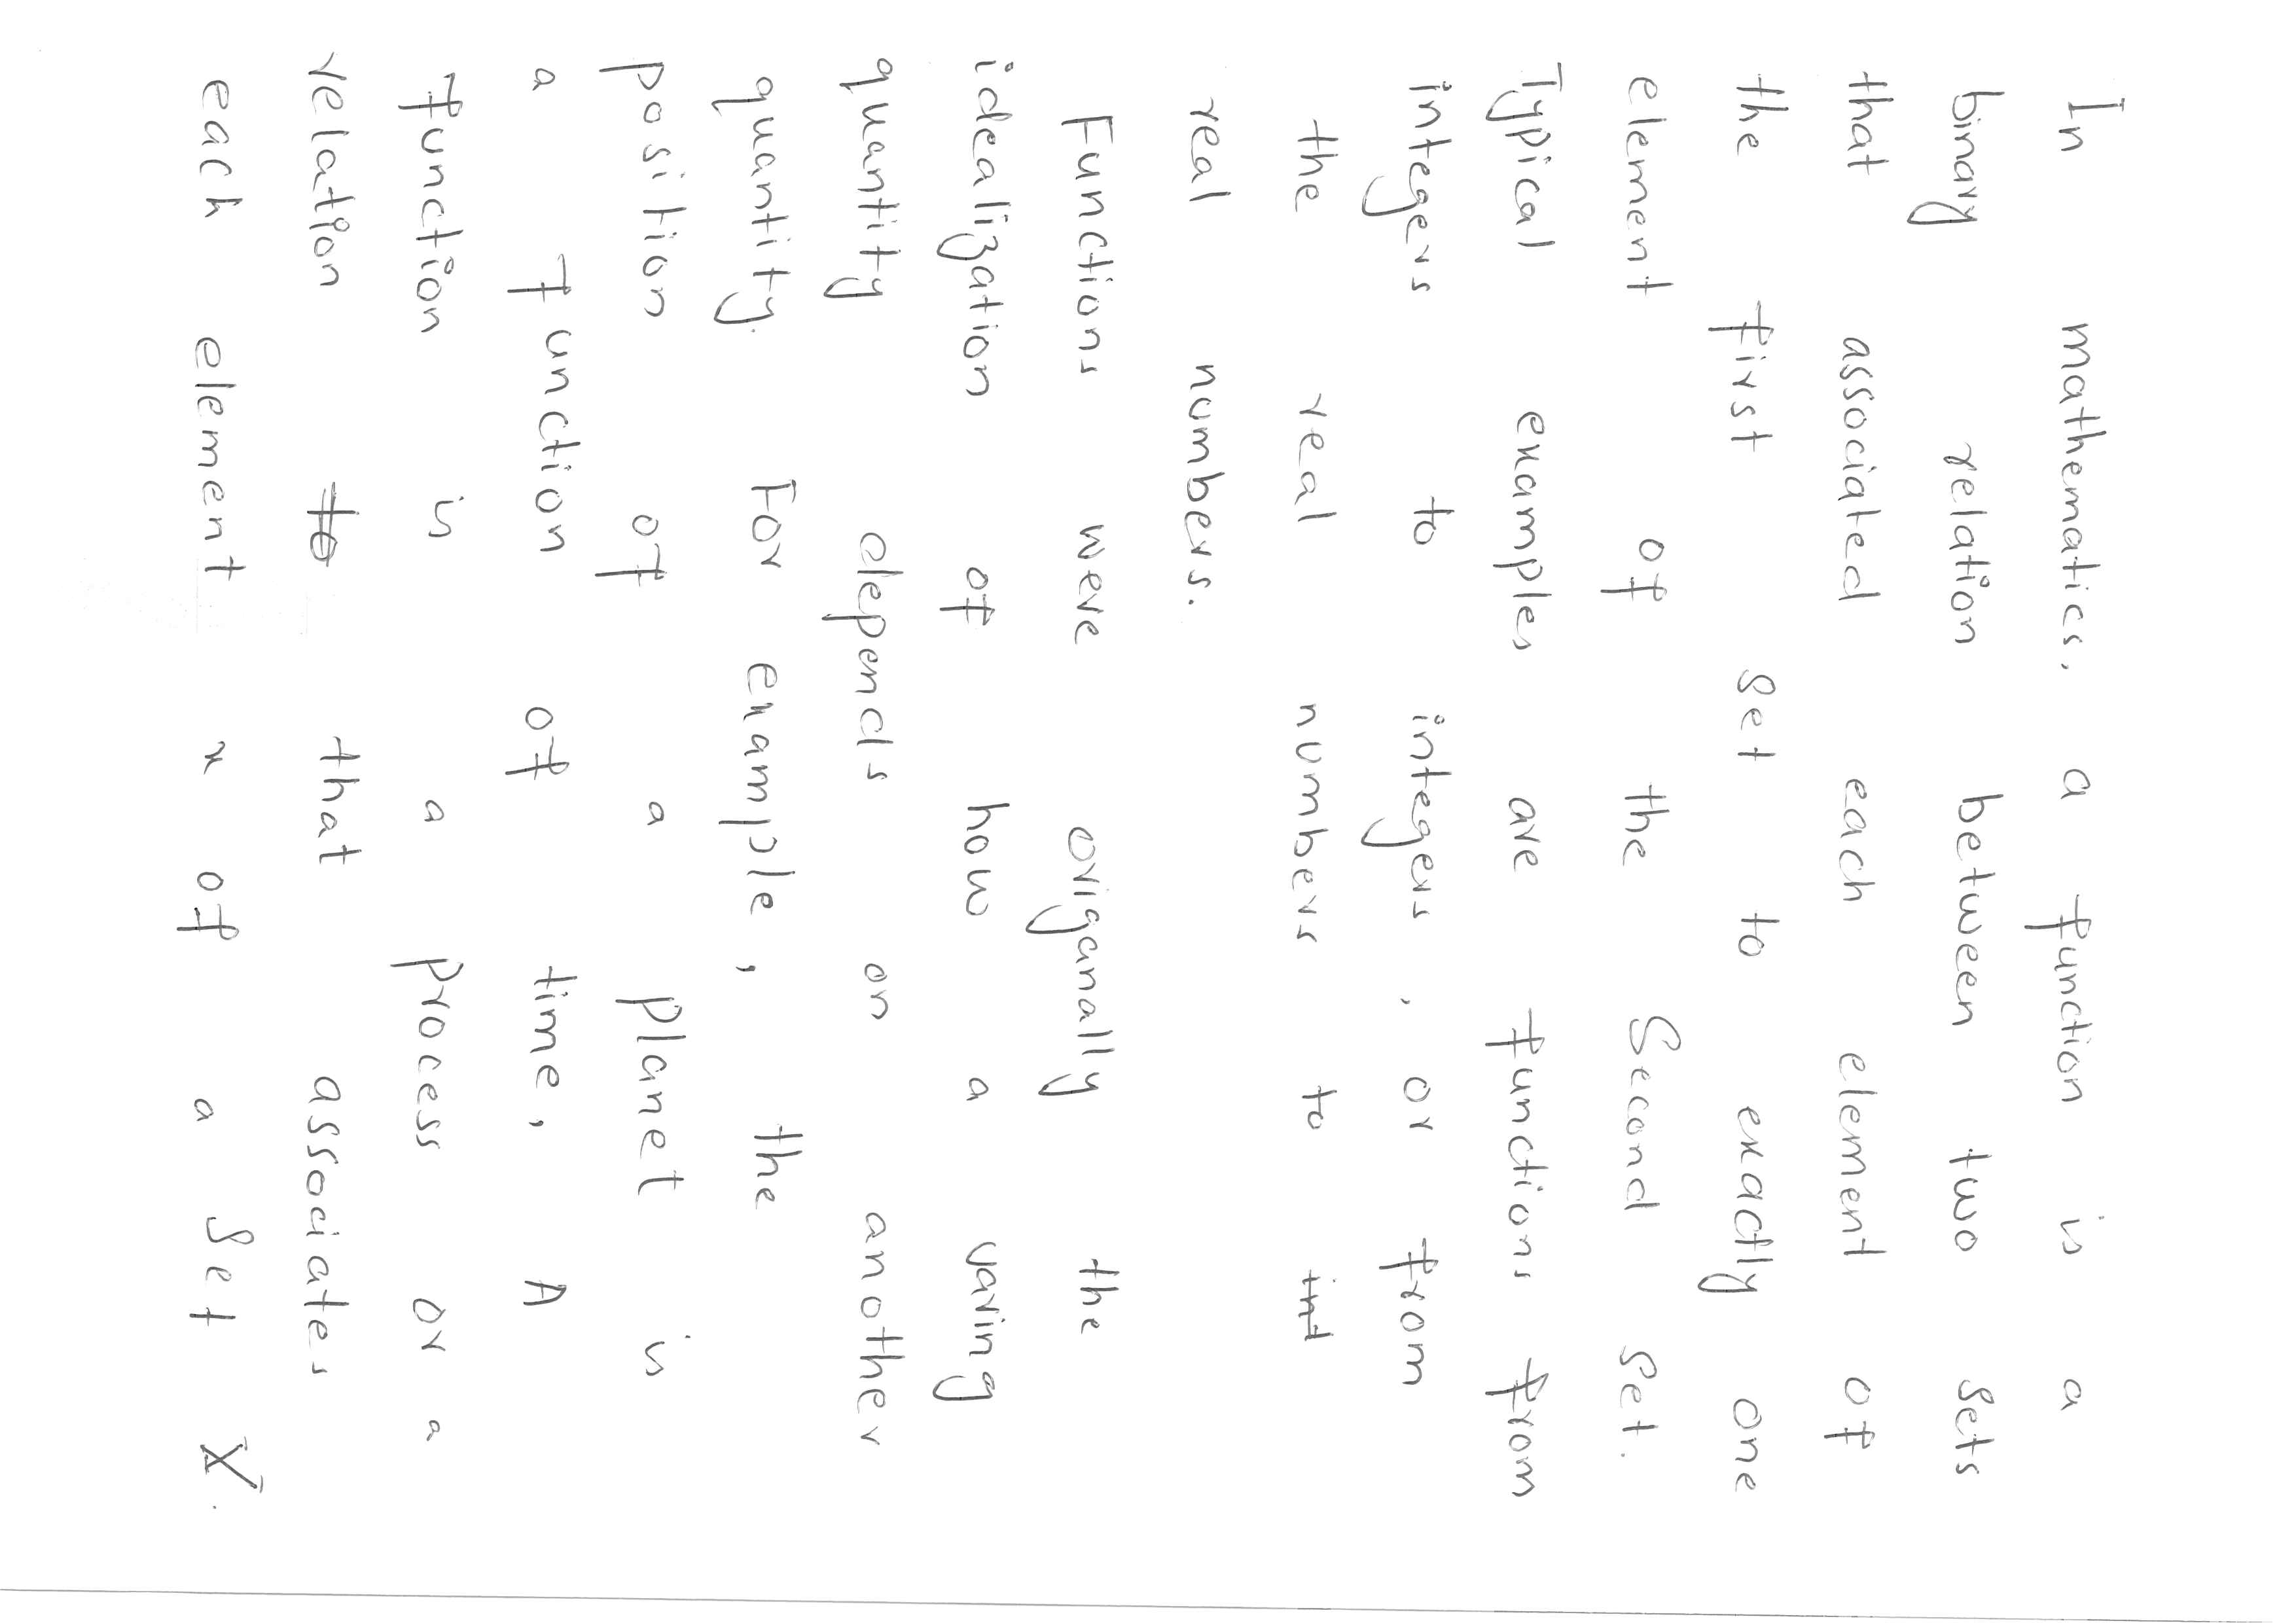 In mathematics, a function is a
binary relation between two sets
that associated each element of
the first set to exactly one
element of the Second set.
Typical examples are functions from
integers to integers, or from
the real numbers to int
real numbers.
Functions were origanally the
idealization of how a varing
quantity depends on another
quantity. For example, the
position of a planet is
a function of time, A
function is a process or a
relation to that associates
each element x of a set X.